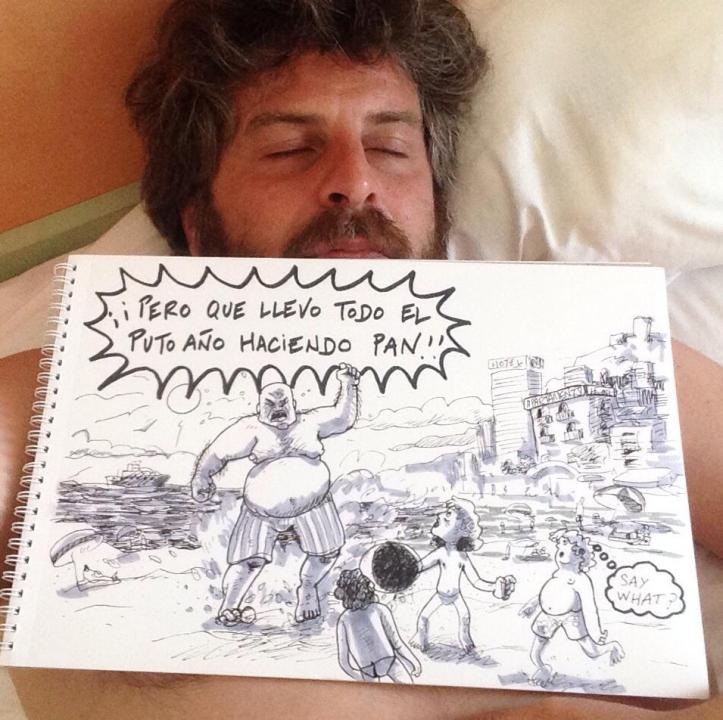 ¡¡PERO QUE LLEVO TODO EL
PUTO AÑO HACIENDO PAN!!
HOTEL
APARTAMENTOS
SAY
WHAT?